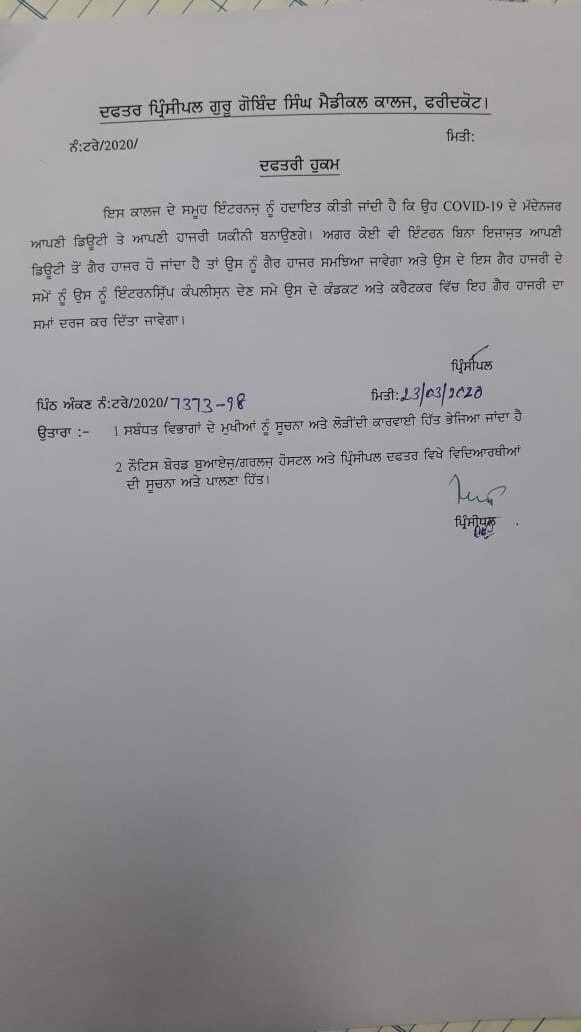 ਦਫਤਰ ਪ੍ਰਿੰਸੀਪਲ ਗੁਰੂ ਗੋਬਿੰਦ ਸਿੰਘ ਮੈਡੀਕਲ ਕਾਲਜ, ਫਰੀਦਕੋਟ।
ਨੰ:ਟਰੇ/2020/ ਮਿਤੀ:
ਦਫਤਰੀ ਹੁਕਮ
ਇਸ ਕਾਲਜ ਦੇ ਸਮੂਹ ਇੰਟਰਨਜ਼ ਨੂੰ ਹਦਾਇਤ ਕੀਤੀ ਜਾਂਦੀ ਹੈ ਕਿ ਉਹ COVID-19 ਦੇ ਮੱਦੇਨਜਰ
ਆਪਣੀ ਡਿਊਟੀ ਤੇ ਆਪਣੀ ਹਾਜਰੀ ਯਕੀਨੀ ਬਨਾਉਣਗੇ। ਅਗਰ ਕੋਈ ਵੀ ਇੰਟਰਨ ਬਿਨਾ ਇਜਾਜ਼ਤ ਆਪਣੀ
ਡਿਊਟੀ ਤੋਂ ਗੈਰ ਹਾਜਰ ਹੋ ਜਾਂਦਾ ਹੈ ਤਾਂ ਉਸ ਨੂੰ ਗੈਰ ਹਾਜਰ ਸਮਝਿਆ ਜਾਵੇਗਾ ਅਤੇ ਉਸ ਦੇ ਇਸ ਗੈਰ ਹਾਜਰੀ ਦੇ
ਸਮੇਂ ਨੂੰ ਉਸ ਨੂੰ ਇੰਟਰਨਸ਼ਿੱਪ ਕੰਪਲੀਸ਼ਨ ਦੇਣ ਸਮੇ ਉਸ ਦੇ ਕੰਡਕਟ ਅਤੇ ਕਰੈਟਕਰ ਵਿੱਚ ਇਹ ਗੈਰ ਹਾਜਰੀ ਦਾ
ਸਮਾਂ ਦਰਜ ਕਰ ਦਿੱਤਾ ਜਾਵੇਗਾ।
ਪ੍ਰਿੰਸੀਪਲ
ਪਿੰਠ ਅੰਕਣ ਨੰ:ਟਰੇ/2020/7373-98 ਮਿਤੀ:23/03/2020
ਉਤਾਰਾ :- 1 ਸਬੰਧਤ ਵਿਭਾਗਾਂ ਦੇ ਮੁਖੀਆਂ ਨੂੰ ਸੂਚਨਾ ਅਤੇ ਲੋੜੀਂਦੀ ਕਾਰਵਾਈ ਹਿੱਤ ਭੇਜਿਆ ਜਾਂਦਾ ਹੈ
2 ਨੌਟਿਸ ਬੋਰਡ ਬੁਆਏਜ਼/ਗਰਲਜ਼ ਹੋਸਟਲ ਅਤੇ ਪ੍ਰਿੰਸੀਪਲ ਦਫਤਰ ਵਿਖੇ ਵਿਦਿਆਰਥੀਆਂ
ਦੀ ਸੂਚਨਾ ਅਤੇ ਪਾਲਣਾ ਹਿੱਤ।
ਪ੍ਰਿੰਸੀਪਲ